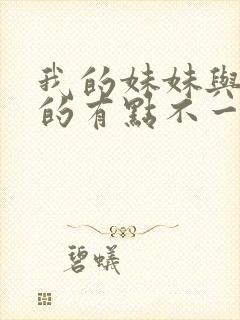 我的妹妹與
的有點不一
碧蟻